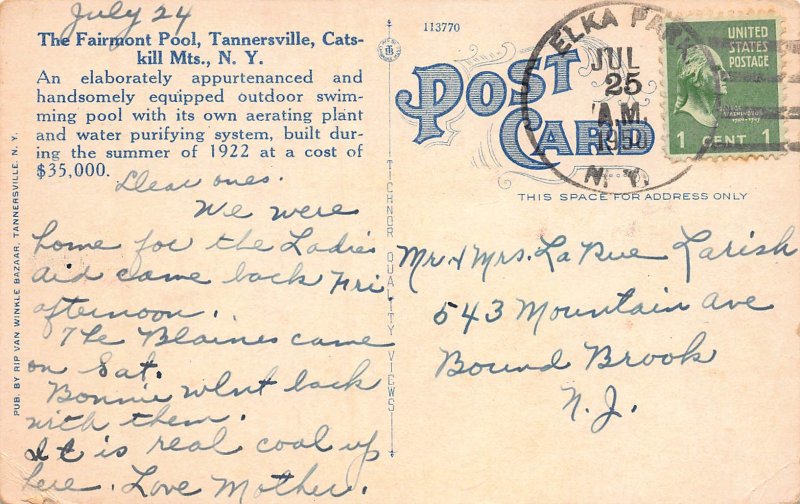 July 24
The Fairmont Pool, Tannersville, Cats-
kill Mts., N. Y.
An elaborately appurtenanced and
handsomely equipped outdoor swim-
ming pool with its own aerating plant
and water purifying system, built dur-
ing the summer of 1922 at a cost of
$35,000.
Dear ones.
We were
home for the Ladies
aid came back Fri
afternoon.
The Blaines came
on Sat.
Bonnie went back
with them.
It is real cool up
here. Love Mother.
PUB. BY RIP VAN WINKLE BAZAAR, TANNERSVILLE, N. Y.
TICHNOR QUALITY VIEWS
113770
POST
CARD
ELKA PARK
JUL
25
A.M.
1950
N. Y.
UNITED
STATES
POSTAGE
WASHINGTON
1 CENT 1
THIS SPACE FOR ADDRESS ONLY
Mr. & Mrs. La Rue Larish
543 Mountain Ave
Bound Brook
N. J.